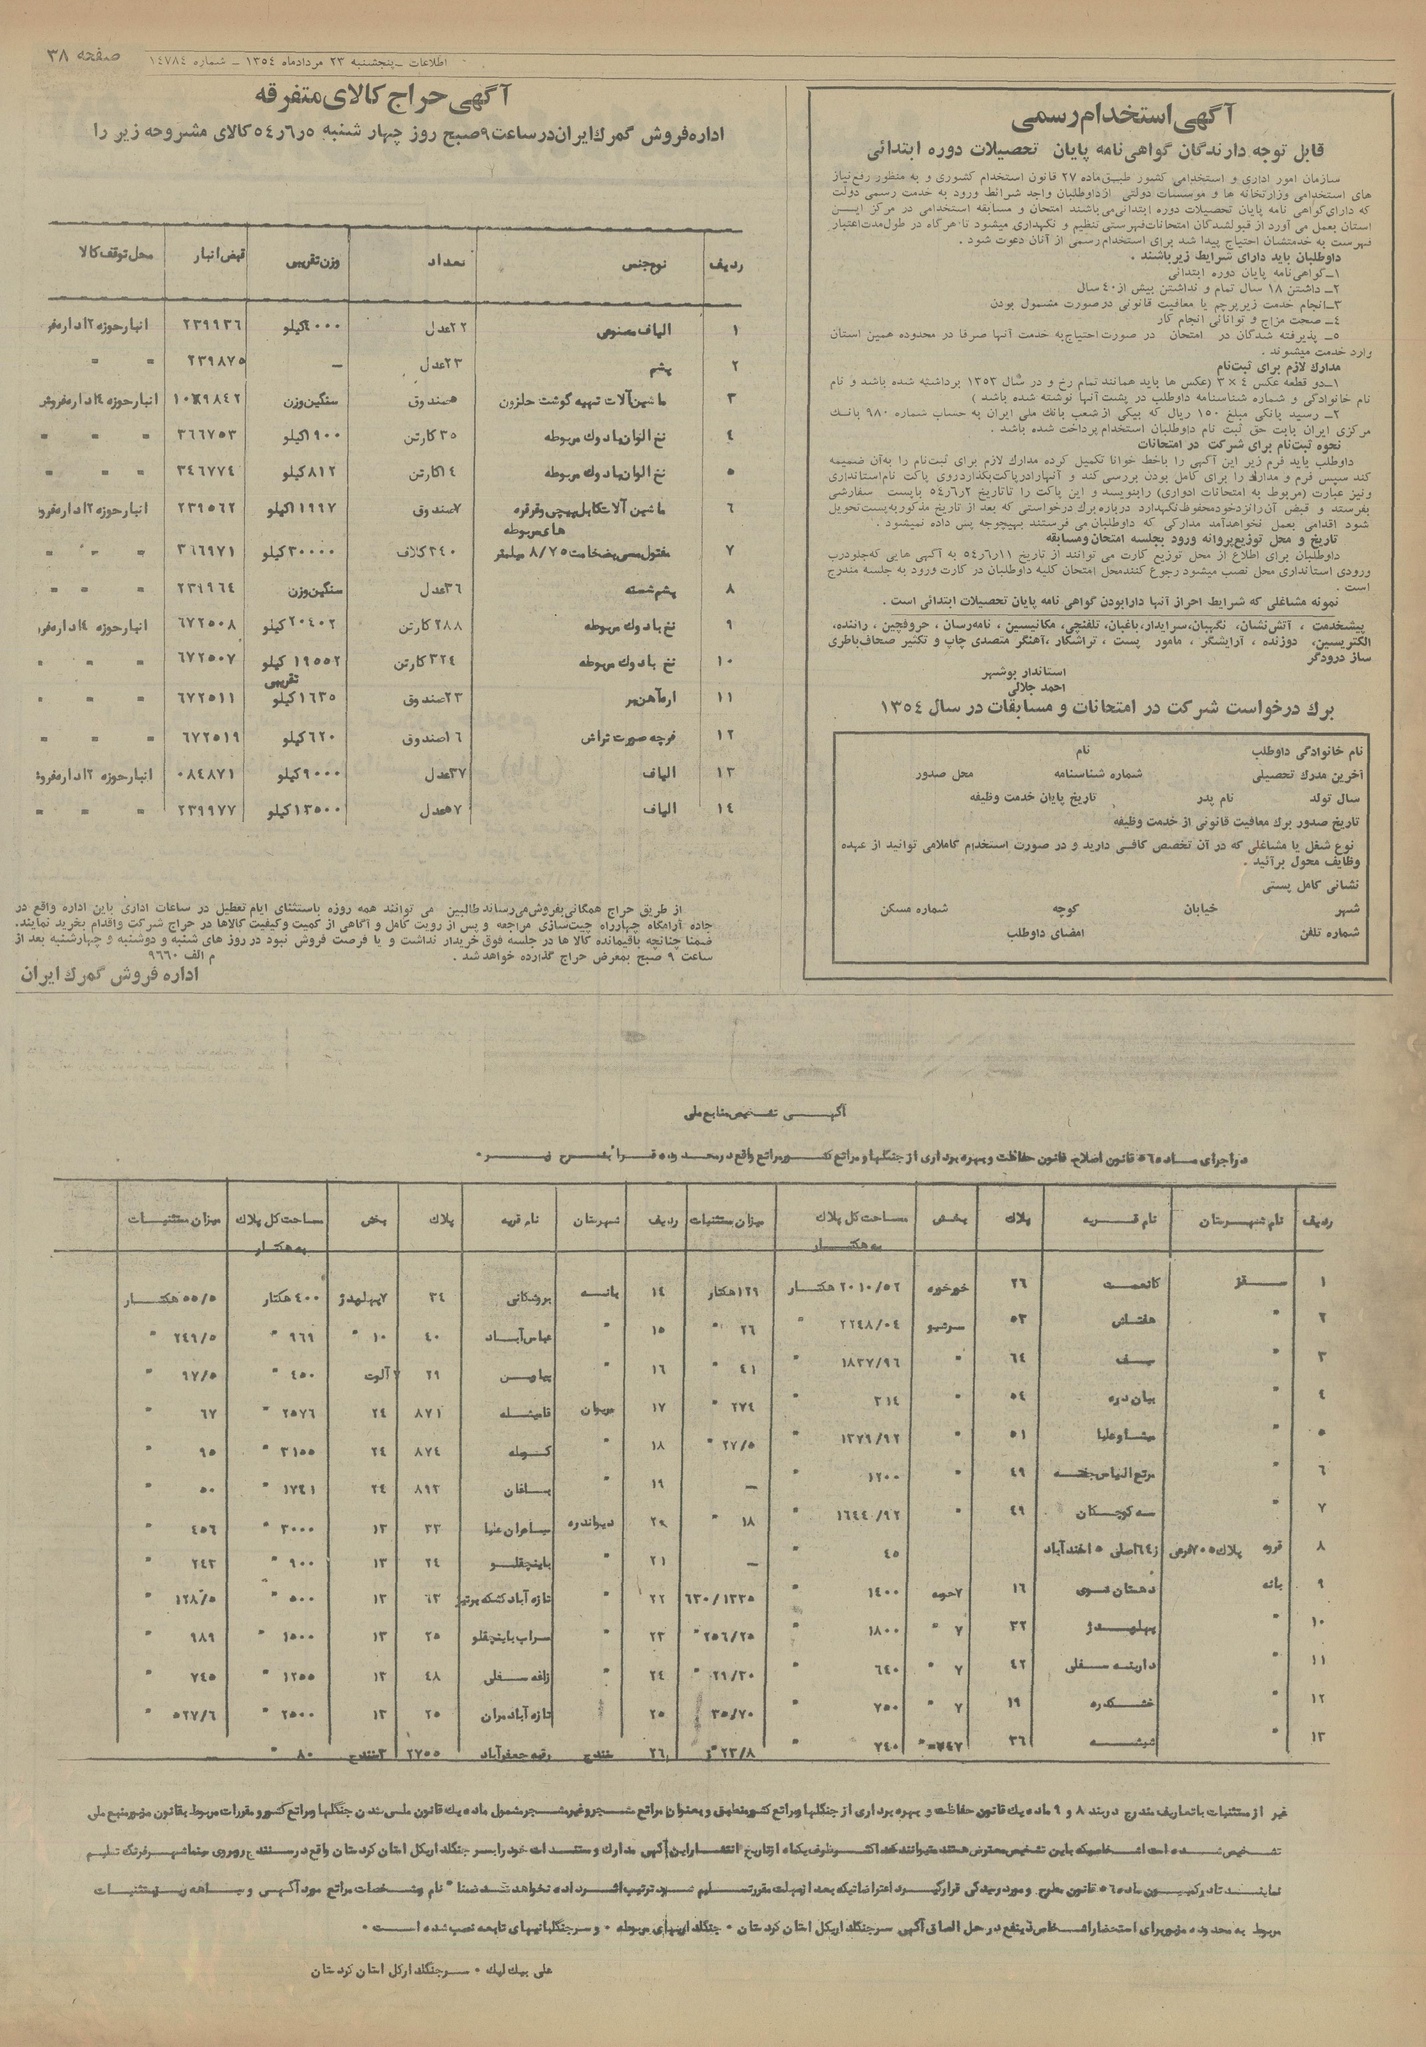 صفحه ۳۸
اطلاعات ـ پنجشنبه ۲۳ مردادماه ۱۳۵۴ ـ شماره ۱۴۷۸۴
آگهی استخدام رسمی
قابل توجه دارندگان گواهی‌نامه پایان تحصیلات دوره ابتدائی
سازمان امور اداری و استخدامی کشور طبق ماده ۲۷ قانون استخدام کشوری و به منظور رفع نیاز
های استخدامی وزارتخانه ها و موسسات دولتی از داوطلبان واجد شرائط ورود به خدمت رسمی دولت
که دارای گواهی نامه پایان تحصیلات دوره ابتدائی می‌باشند امتحان و مسابقه استخدامی در مرکز این
استان بعمل می آورد از قبولشدگان امتحانات فهرستی تنظیم و نگهداری میشود تا هرگاه در طول مدت اعتبار
فهرست به خدمتشان احتیاج پیدا شد برای استخدام رسمی از آنان دعوت شود .
داوطلبان باید دارای شرایط زیر باشند .
۱ـ گواهی‌نامه پایان دوره ابتدائی
۲ـ داشتن ۱۸ سال تمام و نداشتن بیش از ۴۰ سال
۳ـ انجام خدمت زیر پرچم یا معافیت قانونی در صورت مشمول بودن
۴ـ صحت مزاج و توانائی انجام کار
۵ـ پذیرفته شدگان در امتحان در صورت احتیاج به خدمت آنها صرفا در محدوده همین استان
وارد خدمت میشوند .
مدارک لازم برای ثبت‌نام
۱ـ دو قطعه عکس ۴ × ۳ (عکس ها باید همانند تمام رخ و در سال ۱۳۵۳ برداشته شده باشد و نام
نام خانوادگی و شماره شناسنامه داوطلب در پشت آنها نوشته شده باشد )
۲ـ رسید بانکی مبلغ ۱۵۰ ریال که بیکی از شعب بانک ملی ایران به حساب شماره ۹۸۰ بانک
مرکزی ایران بابت حق ثبت نام داوطلبان استخدام پرداخت شده باشد .
نحوه ثبت‌نام برای شرکت در امتحانات
داوطلب باید فرم زیر این آگهی را باخط خوانا تکمیل کرده مدارک لازم برای ثبت‌نام را به آن ضمیمه
کند سپس فرم و مدارک را برای کامل بودن بررسی کند و آنها را در پاکت بگذارد روی پاکت نام استانداری
و نیز عبارت (مربوط به امتحانات ادواری) را بنویسد و این پاکت را تا تاریخ ۵۴ر۶ر۲ با پست سفارشی
بفرستد و قبض آن را نزد خود محفوظ نگهدارد درباره برگ درخواستی که بعد از تاریخ مذکور به پست تحویل
شود اقدامی بعمل نخواهد آمد مدارکی که داوطلبان می فرستند بهیچوجه پس داده نمیشود .
تاریخ و محل توزیع پروانه ورود بجلسه امتحان و مسابقه
داوطلبان برای اطلاع از محل توزیع کارت می توانند از تاریخ ۵۴ر۶ر۱۱ به آگهی هایی که جلو درب
ورودی استانداری محل نصب میشود رجوع کنند محل امتحان کلیه داوطلبان در کارت ورود به جلسه مندرج
است .
نمونه مشاغلی که شرایط احراز آنها دارا بودن گواهی نامه پایان تحصیلات ابتدائی است .
پیشخدمت ، آتش‌نشان، نگهبان، سرایدار، باغبان، تلفنچی، مکانیسین، نامه‌رسان ، حروفچین ، راننده،
الکتریسین، دوزنده ، آرایشگر ، مامور پست ، تراشکار، آهنگر متصدی چاپ و تکثیر صحاف باطری
ساز درودگر
استاندار بوشهر
احمد جلالی
برگ درخواست شرکت در امتحانات و مسابقات در سال ۱۳۵۴
نام خانوادگی داوطلب نام
آخرین مدرک تحصیلی شماره شناسنامه محل صدور
سال تولد نام پدر تاریخ پایان خدمت وظیفه
تاریخ صدور برگ معافیت قانونی از خدمت وظیفه
نوع شغل یا مشاغلی که در آن تخصص کافی دارید و در صورت استخدام کاملا می توانید از عهده
وظایف محول برآئید .
نشانی کامل پستی
شهر خیابان کوچه شماره مسکن
شماره تلفن امضای داوطلب
آگهی حراج کالای متفرقه
اداره فروش گمرک ایران در ساعت ۹ صبح روز چهار شنبه ۵۴ر۶ر۵ کالای مشروحه زیر را
ردیف نوع جنس تعداد وزن تقریبی قبض انبار محل توقف کالا
۱ الیاف مصنوعی ۲۲عدل ۶۰۰۰کیلو ۲۳۹۹۳۶ انبار حوزه ۲ اداره فر
۲ پشم ۲۳عدل ـ ۲۳۹۸۷۵ = =
۳ ماشین آلات تهیه گوشت حلزون صندوق سنگین وزن انبار حوزه ۴ اداره فروش
۴ نخ الوان با دوک مربوطه ۳۵ کارتن ۱۹۰۰کیلو ۳۶۶۷۵۳ = = =
۵ نخ الوان با دوک مربوطه ۱۴کارتن ۸۱۲کیلو ۳۴۶۷۷۴ = = =
۶ ماشین آلات کابل پیچی و قرقره های مربوطه ۷صندوق ۱۱۹۹۷کیلو ۲۳۹۵۶۲ انبار حوزه ۲ اداره فرو
۷ مفتول مسی بضخامت ۸/۷۵ میلیمتر ۲۴۰کلاف ۳۰۰۰۰کیلو = = =
۸ پشم شسته ۳۶عدل سنگین وزن ۲۳۹۹۶۴ = = =
۹ نخ با دوک مربوطه ۲۸۸ کارتن ۲۰۴۰۲کیلو ۶۷۲۵۰۸ انبار حوزه ۴ اداره فر
۱۰ نخ با دوک مربوطه ۳۲۴کارتن ۱۹۵۵۲ کیلو تقریبی ۶۷۲۵۰۷ = = =
۱۱ اره آهن بر ۲۳صندوق ۱۶۳۵کیلو ۶۷۲۵۱۱ = = =
۱۲ فرچه صورت تراش ۱۶صندوق ۶۲۰کیلو ۶۷۲۵۱۹ = = =
۱۳ الیاف ۳۷عدل ۹۰۰۰کیلو ۰۸۴۸۷۱ انبار حوزه ۲ اداره فروش
۱۴ الیاف ۵۷عدل ۱۳۵۰۰کیلو ۲۳۹۹۷۷ = = =
از طریق حراج همگانی بفروش می‌رساند طالبین می توانند همه روزه باستثنای ایام تعطیل در ساعات اداری باین اداره واقع در
جاده آرامگاه چهارراه چیت‌سازی مراجعه و پس از رویت کامل و آگاهی از کمیت و کیفیت کالاها در حراج شرکت و اقدام بخرید نمایند.
ضمنا چنانچه باقیمانده کالا ها در جلسه فوق خریدار نداشت و یا فرصت فروش نبود در روز های شنبه و دوشنبه و چهارشنبه بعد از
ساعت ۹ صبح بمعرض حراج گذارده خواهد شد .
م الف ۹۶۶۰
اداره فروش گمرک ایران
آگهی تشخیص منابع ملی
در اجرای ماده ۵۶ قانون اصلاح قانون حفاظت و بهره برداری از جنگلها و مراتع کشور مراتع واقع در محدوده قراء بشرح زیر .
ردیف نام شهرستان نام قریه پلاک بخش مساحت کل پلاک به هکتار میزان مستثنیات
۱ سقز کانعمت ۲۶ خورخوره ۲۰۱۰/۵۲ هکتار ۱۲۹ هکتار
۲ " هفتاش ۵۳ سرشیو ۲۲۴۸/۰۴ " ۲۶ "
۳ " ۶۴ " ۱۸۳۷/۹۶ " ۴۱ "
۴ " بیان دره ۵۴ " ۳۱۴ " ۲۷۴ "
۵ " ۵۱ " ۱۳۷۹/۹۲ " ۲۷/۵ "
۶ " مرتع الیاس جفته ۴۹ " ۱۲۰۰ " ـ
۷ " سه کوچکان ۴۹ " ۱۶۴۴/۹۲ " ۱۸ "
۸ قروه پلاک ۷۰۵ فرعی از ۶۴ اصلی آخند آباد ۴۵ " ـ
۹ بانه دهستان شوی ۱۶ ۷حومه ۱۴۰۰ " ۶۳۰/۱۳۳۵
۱۰ " پهلویدژ ۳۲ ۷ " ۱۸۰۰ " ۲۵۶/۲۵ "
۱۱ " دارینه سفلی ۴۲ ۷ " ۶۴۰ " ۲۹/۳۰ "
۱۲ " خشکدره ۱۹ ۷ ۷۵۰ " ۳۵/۷۰
۱۳ " شیشه ۳۶ ۷۴۰ " ۲۳/۸ "
ردیف شهرستان نام قریه پلاک بخش مساحت کل پلاک به هکتار میزان مستثنیات
۱۴ بانه بروشکانی ۳۴ ۷پهلویدژ ۴۰۰ هکتار ۵۵/۵ هکتار
۱۵ " عباس آباد ۴۰ ۱۰ " ۹۶۹ " ۲۴۹/۵ "
۱۶ " ۲۹ ۲ آلوت ۴۵۰ " ۹۷/۵ "
۱۷ مریوان قامیشله ۸۷۱ ۲۴ ۲۵۷۶ " ۶۷ "
۱۸ " کوله ۸۷۴ ۲۴ ۳۱۵۵ " ۹۵ "
۱۹ " ۸۹۲ ۲۴ ۱۷۴۱ " ۵۰ "
۲۹ دیواندره ۳۳ ۱۳ ۳۰۰۰ " ۴۵۶ "
۲۱ " باینچقلو ۲۴ ۱۳ ۹۰۰ " ۲۴۳ "
۲۲ " تازه آباد ۶۳ ۱۳ ۵۰۰ " ۱۲۸/۵ "
۲۳ " سراب باینچقلو ۲۵ ۱۳ ۱۵۰۰ " ۹۸۹ "
۲۴ " زاغه سفلی ۴۸ ۱۳ ۱۲۵۵ " ۷۴۵ "
۲۵ " تازه آباد مران ۲۵ ۱۳ ۲۵۰۰ " ۵۲۷/۶ "
۲۶ سنندج رقیه جعفرآباد ۲۷۵۵ ۳سنندج ۸۰ " ـ
غیر از مستثنیات با تعاریف مندرج در بند ۸ و ۹ ماده یک قانون حفاظت و بهره برداری از جنگلها و مراتع کشور منطبق و بعنوان مراتع مشجر و غیر مشجر مشمول ماده یک قانون ملی شدن جنگلها و مراتع کشور و مقررات مربوط بقانون مزبور منبع ملی
تشخیص شده است اشخاصیکه باین تشخیص معترض هستند میتوانند حداکثر ظرف یکماه از تاریخ انتشار این آگهی مدارک و مستندات خود را بسر جنگلداریکل استان کردستان واقع در سنندج روبروی سینما شهر فرنگ تسلیم
نمایند تا در کمیسیون ماده ۵۶ قانون مطرح و مورد رسیدگی قرار گیرد اعتراضاتیکه بعد از مهلت مقرر تسلیم شود ترتیب اثر داده نخواهد شد ضمنا" نام و مشخصات مراتع مورد آگهی و سیاهه ریز مستثنیات
مربوط به محدوده مزبور برای استحضار اشخاص ذینفع در محل الصاق آگهی سرجنگلداریکل استان کردستان . جنگلداریهای مربوطه . و سرجنگلبانیهای تابعه نصب شده است .
علی بیک لیک . سرجنگلدار کل استان کردستان